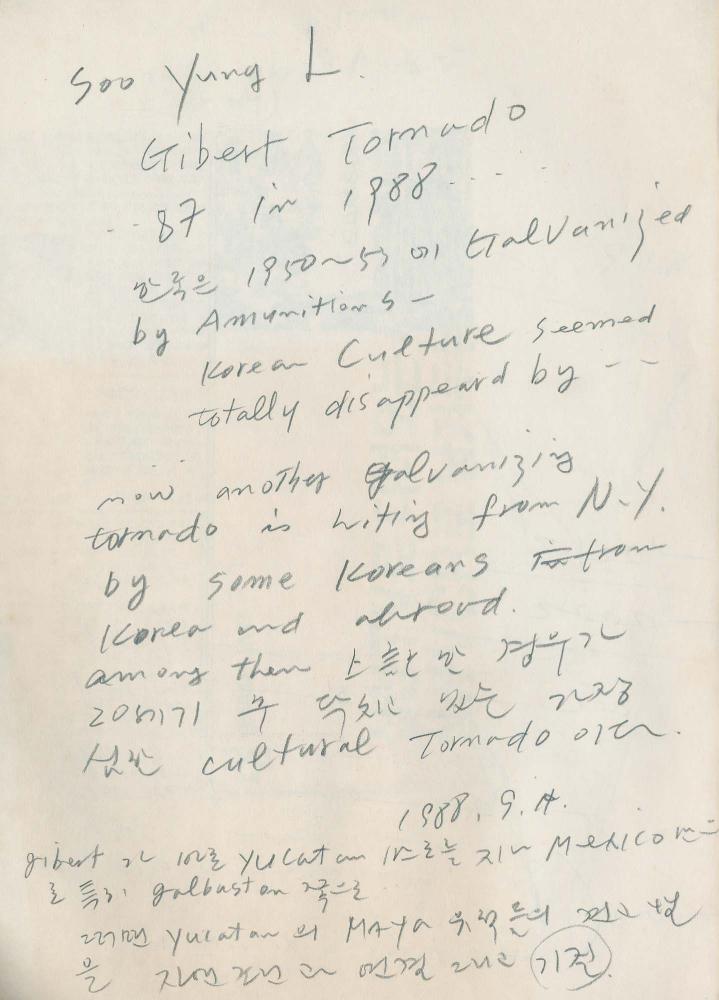 Soo Yung L.
Gibert Tornado
.. 87 in 1988 ....
한국은 1950~53 에 Galvanized
by Amunitions –
Korean Culture seemed
totally disappeard by – –
now another galvanizing
tornado is hiting from N.Y.
by some Koreans from
Korea and abroad.
among them 한 경우가
20세기 닥치고 있는 가장
심한 cultural Tornado 이다.
1988. 9. 14.
gibert 가 Yucatan 지나 Mexico 만으
로 특히 galbuston 쪽으로
그러면 Yucatan 의 MAYA 유적들의
을 자연 과 연결 기절